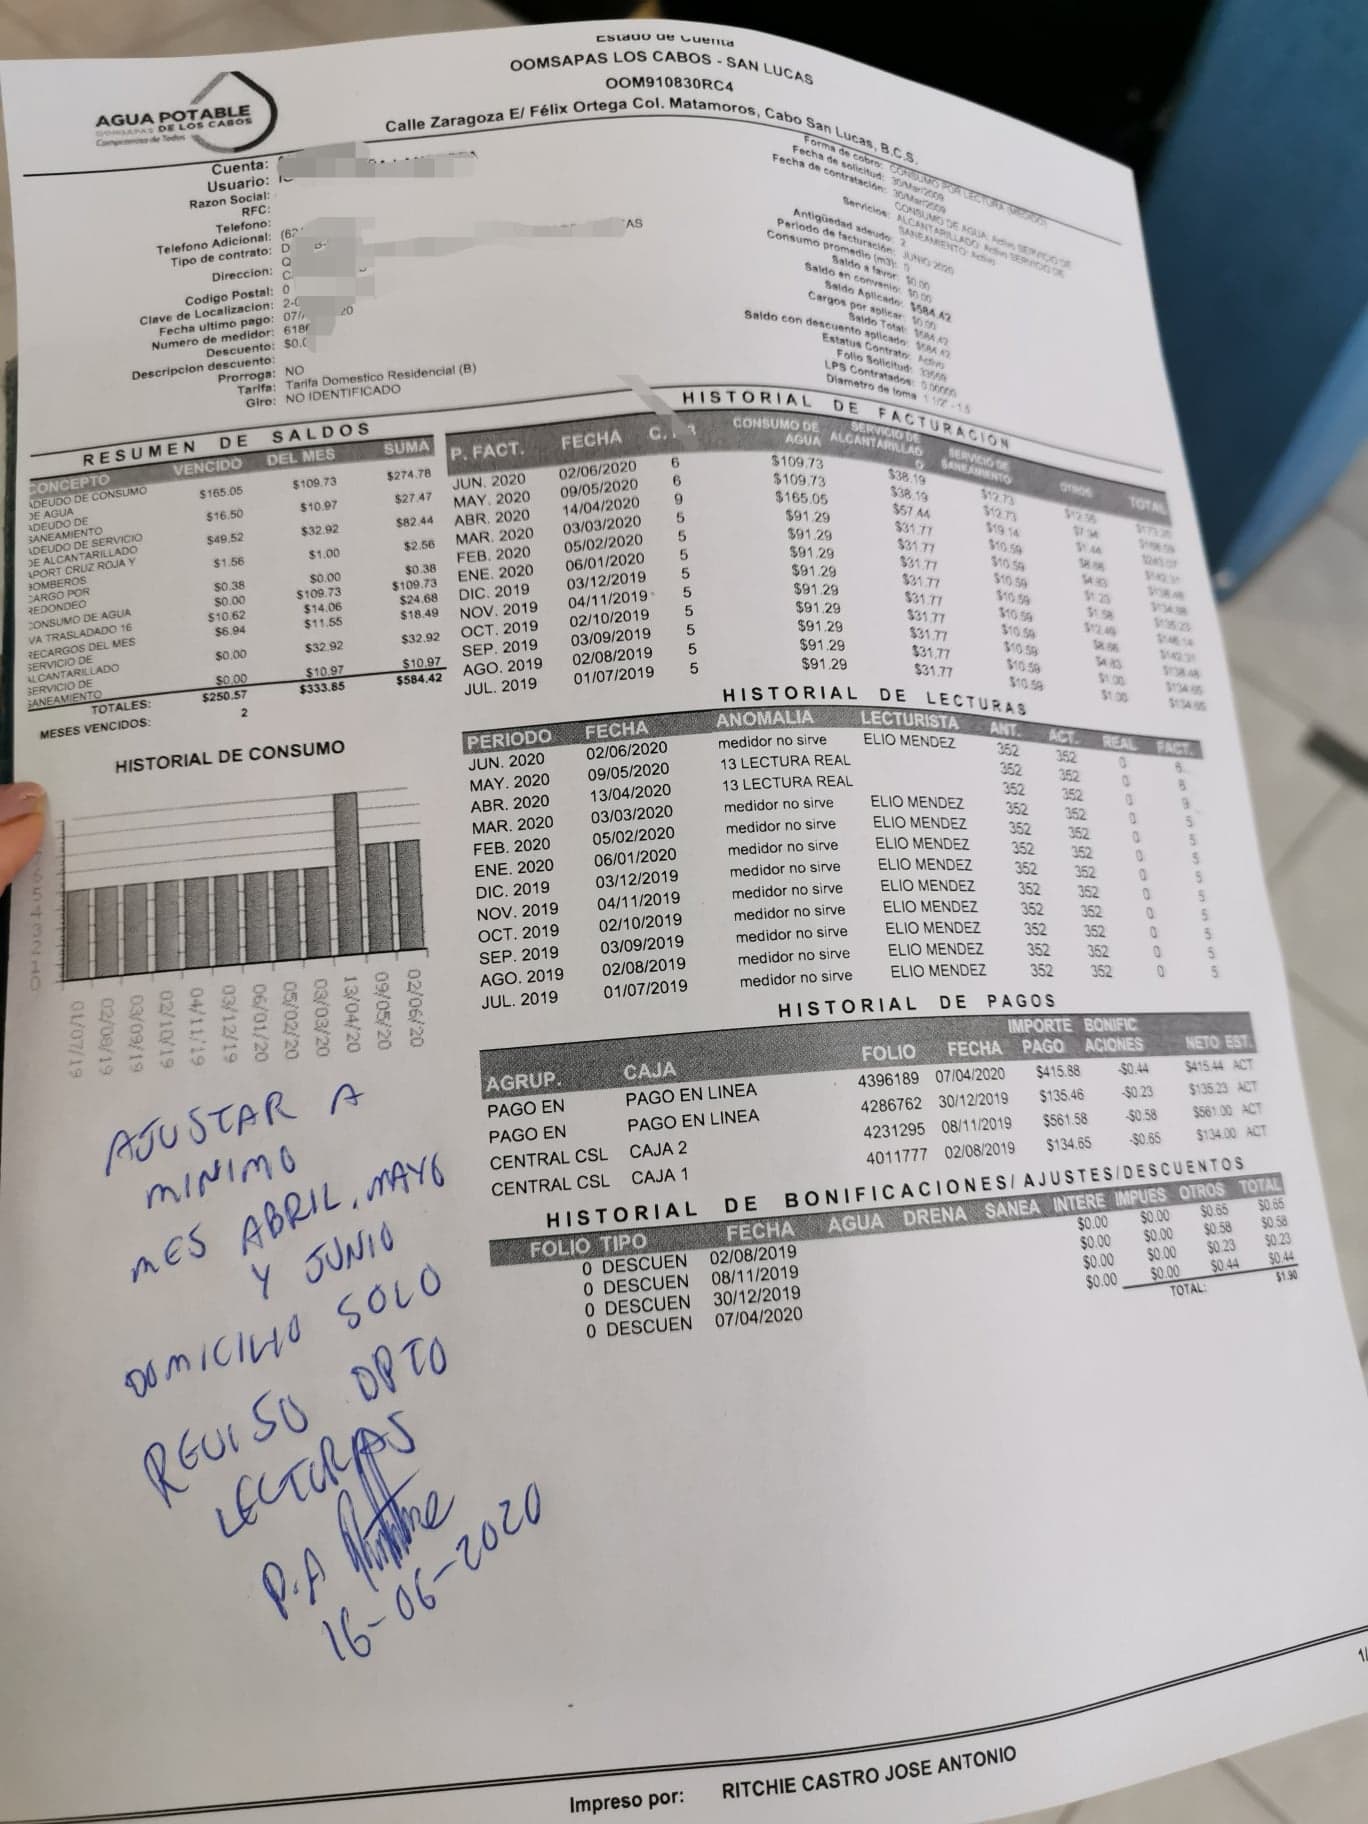 Estado de Cuenta
OOMSAPAS LOS CABOS - SAN LUCAS
OOM910830RC4
Calle Zaragoza E/ Félix Ortega Col. Matamoros, Cabo San Lucas, B.C.S.
AGUA POTABLE
DE LOS CABOS
Compromiso de Todos
Cuenta:
Usuario:
Razon Social:
RFC:
Telefono:
Telefono Adicional:
Tipo de contrato: D
Direccion:
Codigo Postal: 0
Clave de Localizacion:
Fecha ultimo pago: 07/ 20
Numero de medidor:
Descuento:
Descripcion descuento:
Prorroga: NO
Tarifa: Tarifa Domestico Residencial (B)
Giro: NO IDENTIFICADO
Forma de cobro: CONSUMO POR LECTURA (MEDIDO)
Fecha de solicitud: 30/Mar/2009
Fecha de contratación: 30/Mar/2009
Servicios: CONSUMO DE AGUA: Activo SERVICIO DE
ALCANTARILLADO: Activo SERVICIO DE
SANEAMIENTO: Activo
Antigüedad adeudo: 2
Periodo de facturación: JUNIO 2020
Consumo promedio (m3): 0
Saldo a favor: $0.00
Saldo en convenio: $0.00
Saldo Aplicado: $584.42
Cargos por aplicar: $0.00
Saldo Total: $584.42
Saldo con descuento aplicado: $584.42
Estatus Contrato: Activo
Folio Solicitud: 33559
LPS Contratados: 0.00000
Diametro de toma: 1 1/2" - 1.5
RESUMEN DE SALDOS
CONCEPTO VENCIDO DEL MES SUMA
ADEUDO DE CONSUMO DE AGUA $165.05 $109.73 $274.78
ADEUDO DE SANEAMIENTO $16.50 $10.97 $27.47
ADEUDO DE SERVICIO DE ALCANTARILLADO $49.52 $32.92 $82.44
APORT CRUZ ROJA Y BOMBEROS $1.56 $1.00 $2.56
CARGO POR REDONDEO $0.38 $0.00 $0.38
CONSUMO DE AGUA $0.00 $109.73 $109.73
IVA TRASLADADO 16 $10.62 $14.06 $24.68
RECARGOS DEL MES $6.94 $11.55 $18.49
SERVICIO DE ALCANTARILLADO $0.00 $32.92 $32.92
SERVICIO DE SANEAMIENTO $0.00 $10.97 $10.97
TOTALES: $250.57 $333.85 $584.42
MESES VENCIDOS: 2
HISTORIAL DE FACTURACION
P. FACT. FECHA C. CONSUMO DE AGUA SERVICIO DE ALCANTARILLADO SERVICIO DE SANEAMIENTO OTROS TOTAL
JUN. 2020 02/06/2020 6 $109.73 $38.19 $12.73
MAY. 2020 09/05/2020 6 $109.73 $38.19 $12.73
ABR. 2020 14/04/2020 9 $165.05 $57.44 $19.14
MAR. 2020 03/03/2020 5 $91.29 $31.77 $10.59
FEB. 2020 05/02/2020 5 $91.29 $31.77 $10.59
ENE. 2020 06/01/2020 5 $91.29 $31.77 $10.59
DIC. 2019 03/12/2019 5 $91.29 $31.77 $10.59
NOV. 2019 04/11/2019 5 $91.29 $31.77 $10.59
OCT. 2019 02/10/2019 5 $91.29 $31.77 $10.59
SEP. 2019 03/09/2019 5 $91.29 $31.77 $10.59
AGO. 2019 02/08/2019 5 $91.29 $31.77 $10.59
JUL. 2019 01/07/2019 5 $91.29 $31.77 $10.59
HISTORIAL DE LECTURAS
PERIODO FECHA ANOMALIA LECTURISTA ANT. ACT. REAL FACT.
JUN. 2020 02/06/2020 medidor no sirve ELIO MENDEZ 352 352 0 6
MAY. 2020 09/05/2020 13 LECTURA REAL 352 352 0 6
ABR. 2020 13/04/2020 13 LECTURA REAL 352 352 0 9
MAR. 2020 03/03/2020 medidor no sirve ELIO MENDEZ 352 352 0 5
FEB. 2020 05/02/2020 medidor no sirve ELIO MENDEZ 352 352 0 5
ENE. 2020 06/01/2020 medidor no sirve ELIO MENDEZ 352 352 0 5
DIC. 2019 03/12/2019 medidor no sirve ELIO MENDEZ 352 352 0 5
NOV. 2019 04/11/2019 medidor no sirve ELIO MENDEZ 352 352 0 5
OCT. 2019 02/10/2019 medidor no sirve ELIO MENDEZ 352 352 0 5
SEP. 2019 03/09/2019 medidor no sirve ELIO MENDEZ 352 352 0 5
AGO. 2019 02/08/2019 medidor no sirve ELIO MENDEZ 352 352 0 5
JUL. 2019 01/07/2019 medidor no sirve ELIO MENDEZ 352 352 0 5
HISTORIAL DE CONSUMO
01/07/19 02/08/19 03/09/19 02/10/19 04/11/19 03/12/19 06/01/20 05/02/20 03/03/20 13/04/20 09/05/20 02/06/20
HISTORIAL DE PAGOS
AGRUP. CAJA FOLIO FECHA IMPORTE PAGO BONIFICACIONES NETO EST.
PAGO EN PAGO EN LINEA 4396189 07/04/2020 $415.88 -$0.44 $415.44 ACT
PAGO EN PAGO EN LINEA 4286762 30/12/2019 $135.46 -$0.23 $135.23 ACT
CENTRAL CSL CAJA 2 4231295 08/11/2019 $561.58 -$0.58 $561.00 ACT
CENTRAL CSL CAJA 1 4011777 02/08/2019 $134.65 -$0.65 $134.00 ACT
HISTORIAL DE BONIFICACIONES/AJUSTES/DESCUENTOS
FOLIO TIPO FECHA AGUA DRENA SANEA INTERE IMPUES OTROS TOTAL
0 DESCUEN 02/08/2019 $0.00 $0.00 $0.65 $0.65
0 DESCUEN 08/11/2019 $0.00 $0.00 $0.58 $0.58
0 DESCUEN 30/12/2019 $0.00 $0.00 $0.23 $0.23
0 DESCUEN 07/04/2020 $0.00 $0.00 $0.44 $0.44
TOTAL: $1.90
AJUSTAR A
MINIMO
MES ABRIL, MAYO
Y JUNIO
DOMICILIO SOLO
REVISO DPTO
LECTURAS
P.A
16-06-2020
1/
Impreso por: RITCHIE CASTRO JOSE ANTONIO